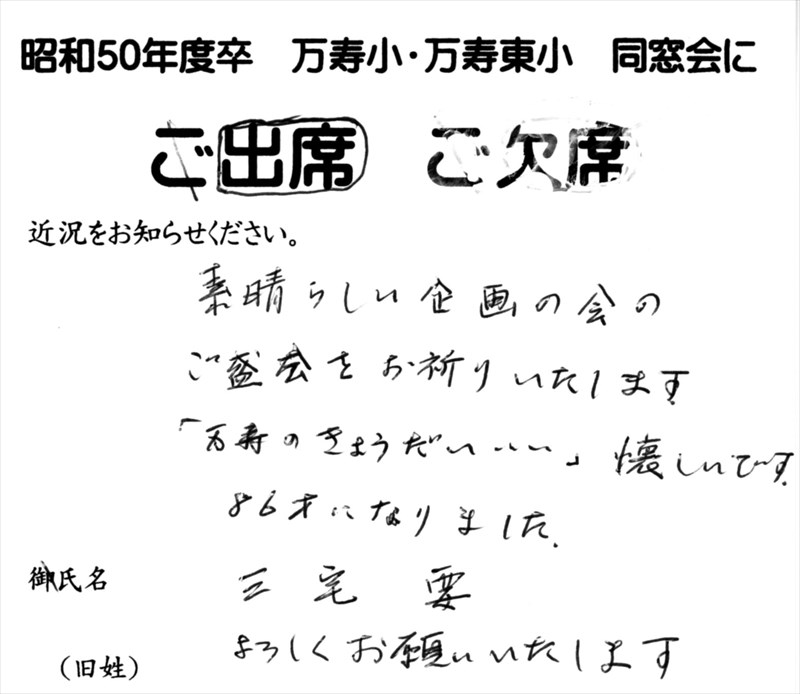 昭和50年度卒　万寿小・万寿東小　同窓会に
ご出席　ご欠席
近況をお知らせください。
素晴らしい企画の会の
ご盛会をお祈りいたします
「万寿のきょうだい・・・」懐しいです。
86才になりました。
御氏名　三宅　要
よろしくお願いいたします
（旧姓）